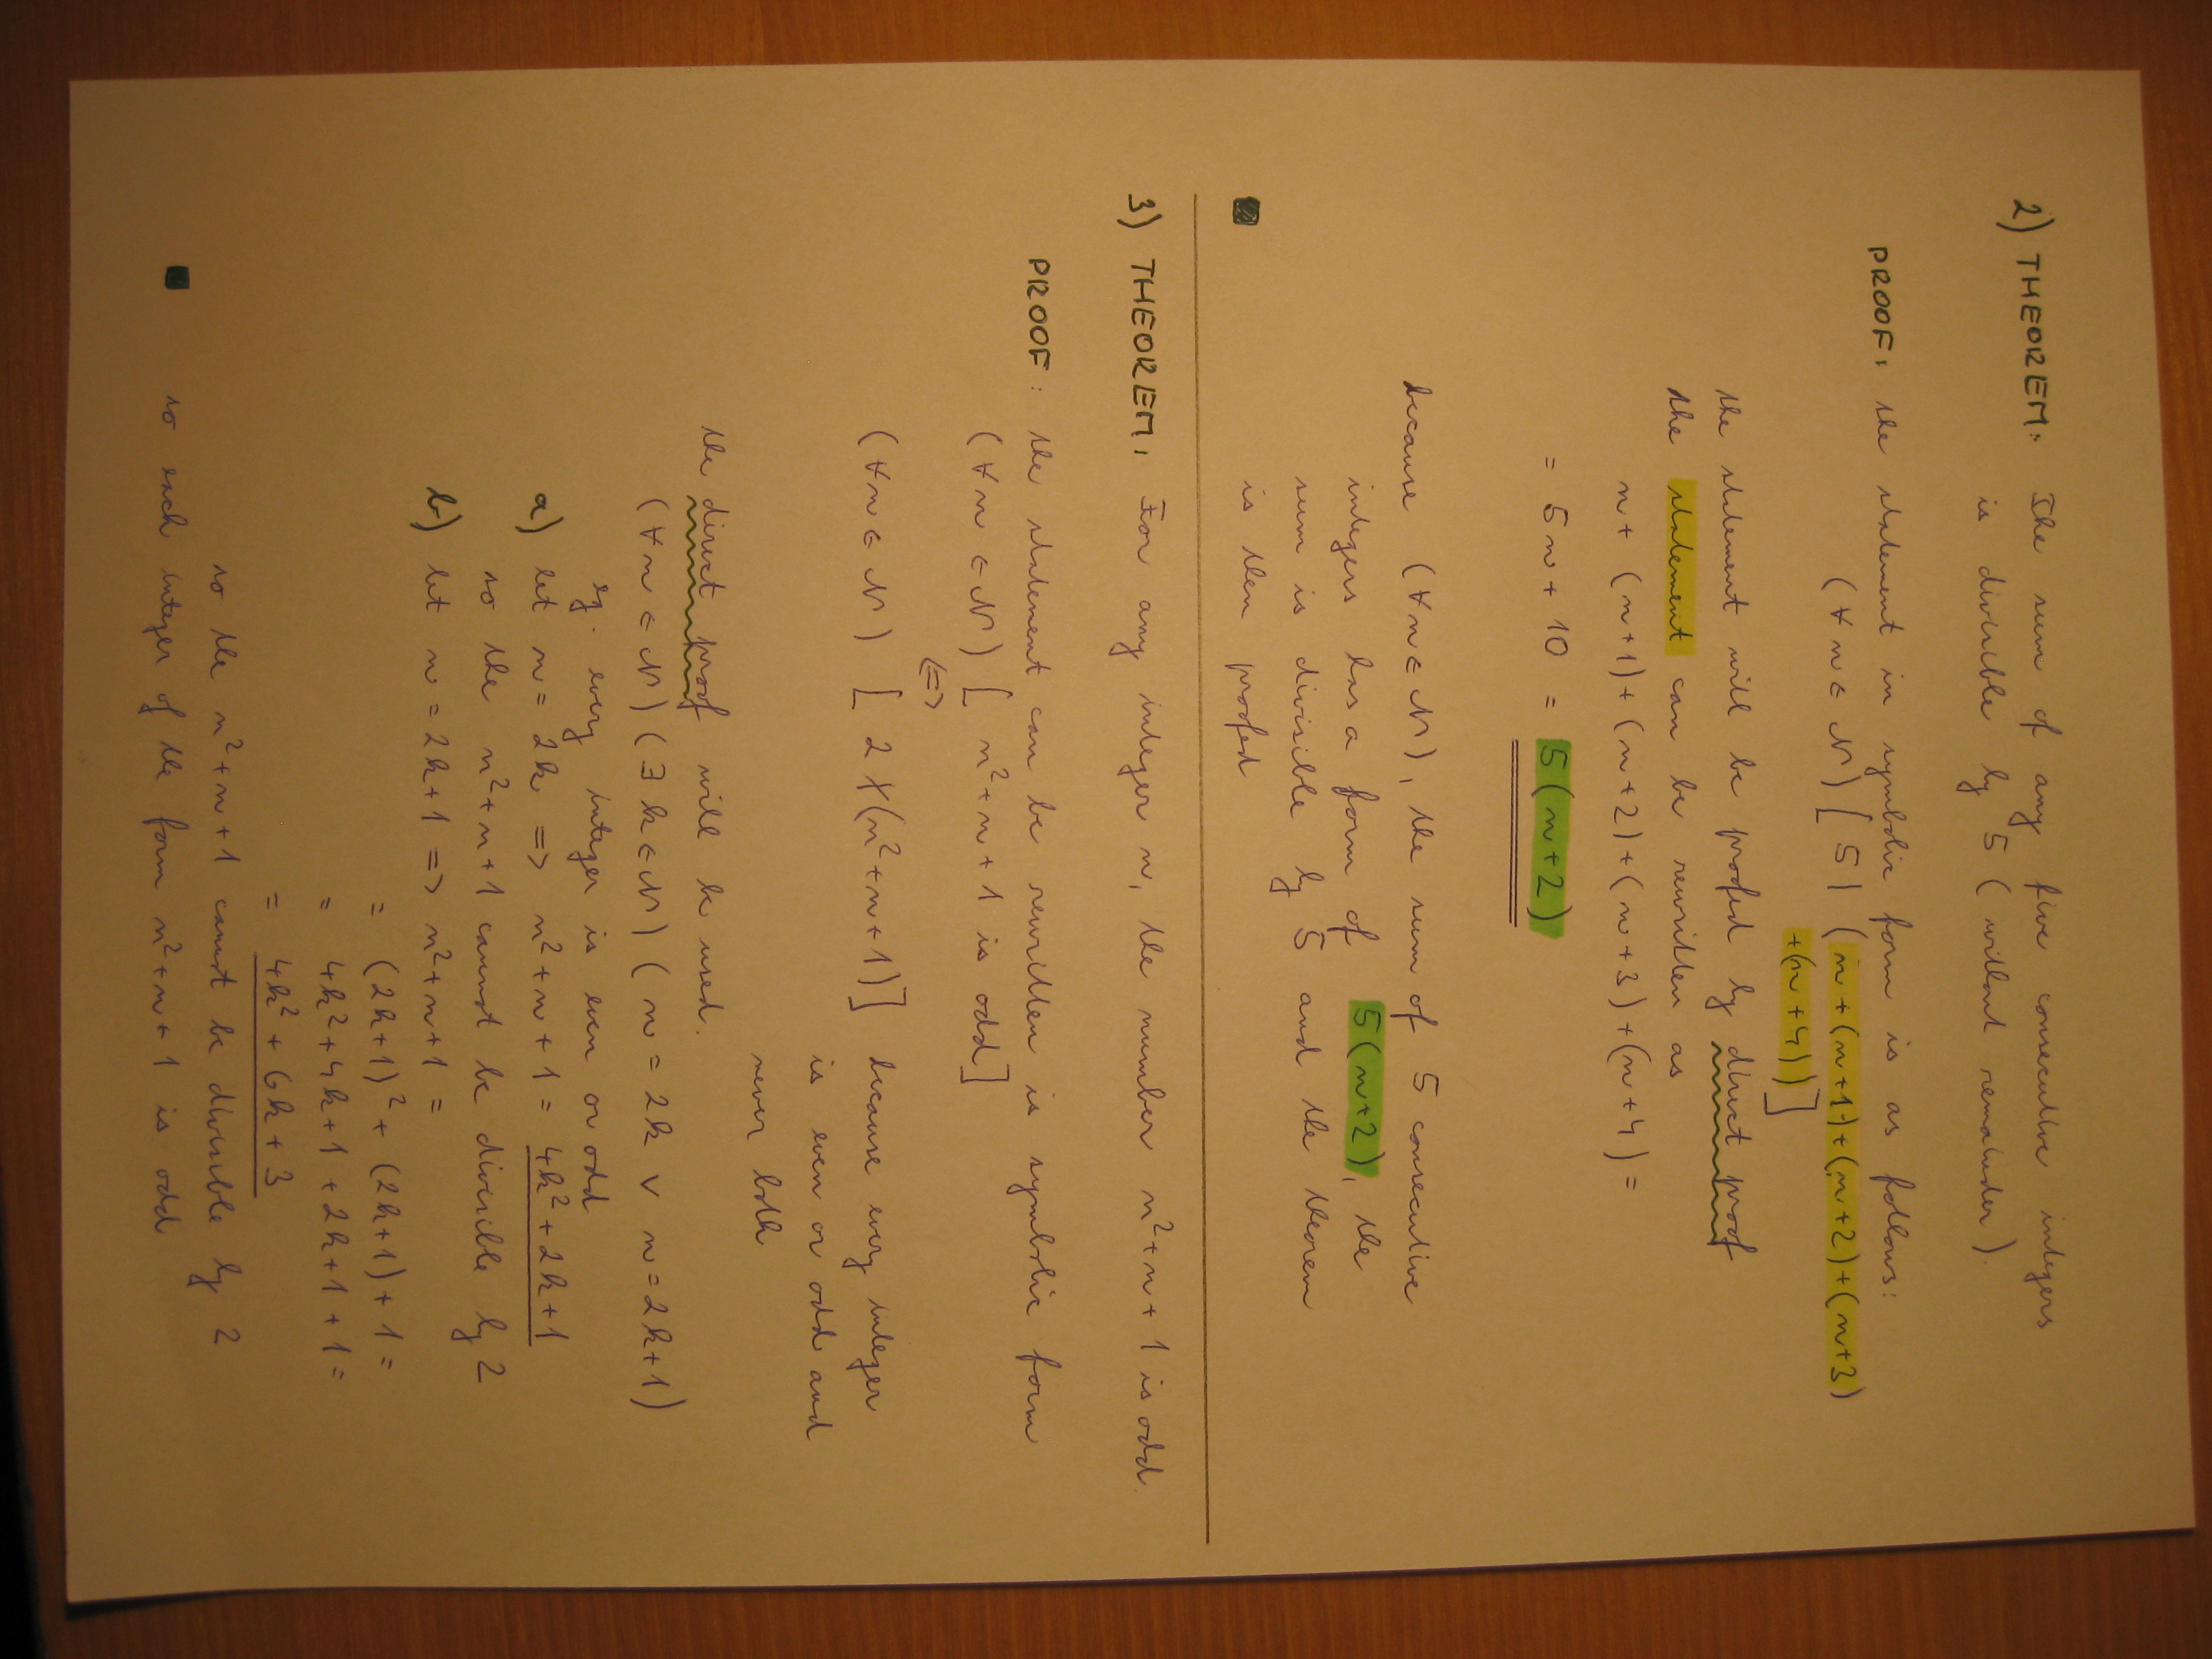 2) THEOREM: The sum of any five consecutive integers
is divisible by 5 (without remainder).
PROOF: the statement in symbolic form is as follows:
(∀n∈N)[5|(n+(n+1)+(n+2)+(n+3)
+(n+4))]
the statement will be proofed by direct proof
the statement can be rewritten as
n+(n+1)+(n+2)+(n+3)+(n+4)=
= 5n+10 = 5(n+2)
because (∀n∈N), the sum of 5 consecutive
integers has a form of 5(n+2), the
sum is divisible by 5 and the theorem
is then proofed
3) THEOREM: For any integer n, the number n²+n+1 is odd
PROOF: the statement can be rewritten is symbolic form
(∀n∈N)[n²+n+1 is odd]
<=>
(∀n∈N)[2∤(n²+n+1)] because every integer
is even or odd and
never both
the direct proof will be used.
(∀n∈N)(∃k∈N)(n=2k ∨ n=2k+1)
eg. every integer is even or odd
a) let n=2k => n²+n+1 = 4k²+2k+1
so the n²+n+1 cannot be divisible by 2
b) let n=2k+1 => n²+n+1 =
= (2k+1)²+(2k+1)+1=
= 4k²+4k+1+2k+1+1=
= 4k²+6k+3
so the n²+n+1 cannot be divisible by 2
so each integer of the form n²+n+1 is odd